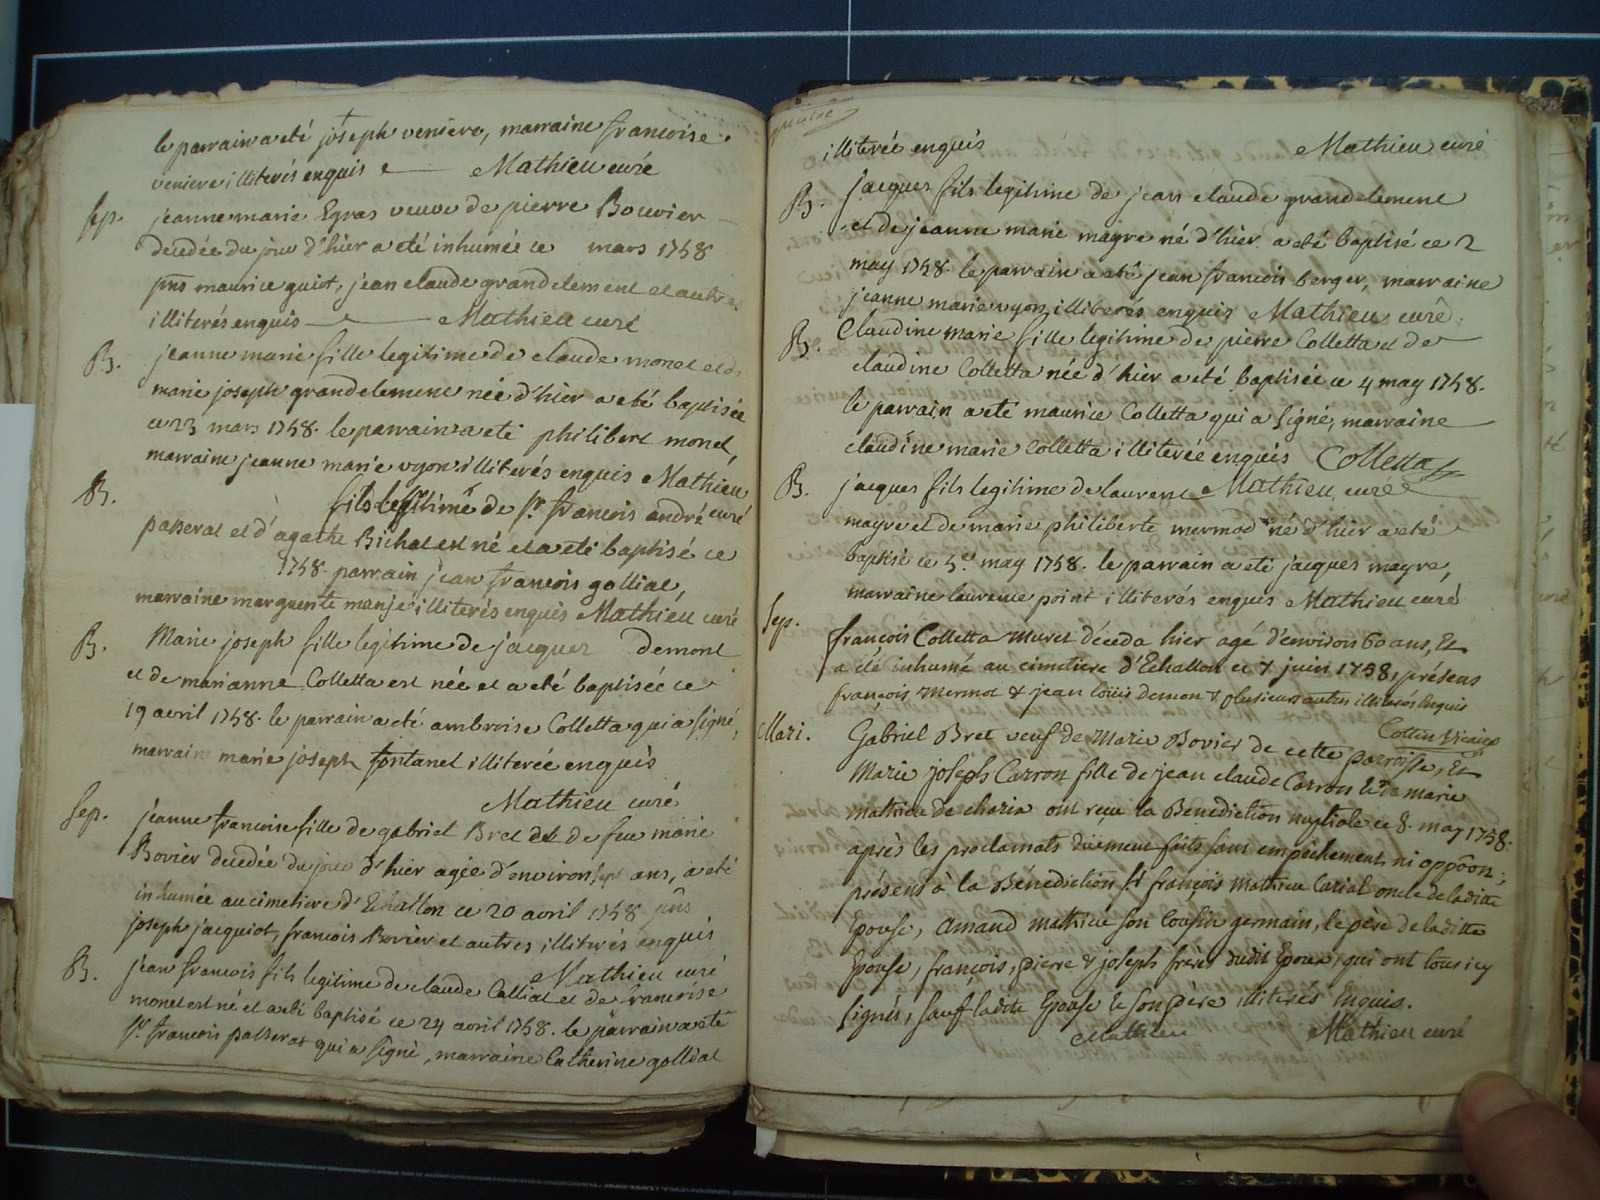 le parrain a eté joseph veniere, marraine francoise
veniere illiterés enquis Mathieu curé
sep. jeanne marie Egras veuve de pierre Bouvier
decedée du jour d'hier a eté inhumée ce mars 1758
pns maurice guiot, jean claude grandclement et autres
illiterés enquis Mathieu curé
B. jeanne marie fille legitime de claude monet et de
marie joseph grandclement née d'hier a eté baptisée
ce 23 mars 1758. le parrain a eté philibert monet,
marraine jeanne marie vyon illiterés enquis Mathieu
curé
B. fils legitime de sr. francois andré
passerat et d'agathe Bichat est né et a eté baptisé ce
1758. parrain jean francois golliat,
marraine marguerite manje illiterés enquis Mathieu curé
B. Marie joseph fille legitime de jacques demont
et de marianne Colletta est née et a eté baptisée ce
19 avril 1758. le parrain a eté ambroise Colletta qui a signé,
marraine marie joseph fontanel illiterée enquis
Mathieu curé
sep. jeanne francoise fille de gabriel Bret et de feue marie
Bovier decedée du jour d'hier agée d'environ sept ans, a eté
inhumée au cimetiere d'Echallon ce 20 avril 1758 pns
joseph jacquiot, francois Bovier et autres illiterés enquis
Mathieu curé
B. jean francois fils legitime de claude Calliat et de francoise
monet est né et a eté baptisé ce 24 avril 1758. le parrain a eté
sr. francois passerat qui a signé, marraine Catherine golliat
illiterée enquis Mathieu curé
B. jacques fils legitime de jean claude grandclement
et de jeanne marie mayre né d'hier a eté baptisé ce 2
may 1758. le parrain a eté jean francois berger, marraine
jeanne marie vyon illiterés enquis Mathieu curé.
B. Claudine marie fille legitime de pierre Colletta et de
claudine Colletta née d'hier a eté baptisée ce 4 may 1758.
le parrain a eté maurice Colletta qui a signé, marraine
claudine marie Colletta illiterée enquis Colletta
Mathieu curé
B. jacques fils legitime de laurent
mayre et de marie philiberte mermod né d'hier a eté
baptisé ce 5e. may 1758. le parrain a eté jacques mayre,
marraine laurence point illiterés enquis Mathieu curé
Sep. françois Colletta Muret déceda hier agé d'environ 60 ans, Et
a été inhumé au cimetiere d'Echallon ce 7 juin 1758, présens
françois Mermot & jean loüis demon & plusieurs autres illiterés Enquis
Collin Vicaire
Mari. Gabriel Bret veuf de Marie Bovier de cette parroisse, Et
Marie joseph Carron fille de jean claude Carron & de marie
mathieu de charix ont reçu la Bénédiction nuptiale ce 8. may 1758.
après les proclamats düement faits sans empêchement, ni oppôon;
présens à la Bénédiction sr françois mathieu oncle de ladite
Epouse, Amand mathieu son cousin germain, le père de laditte
Epouse, françois, pierre & joseph frères dudit Epoux, qui ont tous icy
signés, sauf ladite Epouse & son père illiterés Enquis.
Mathieu Mathieu curé